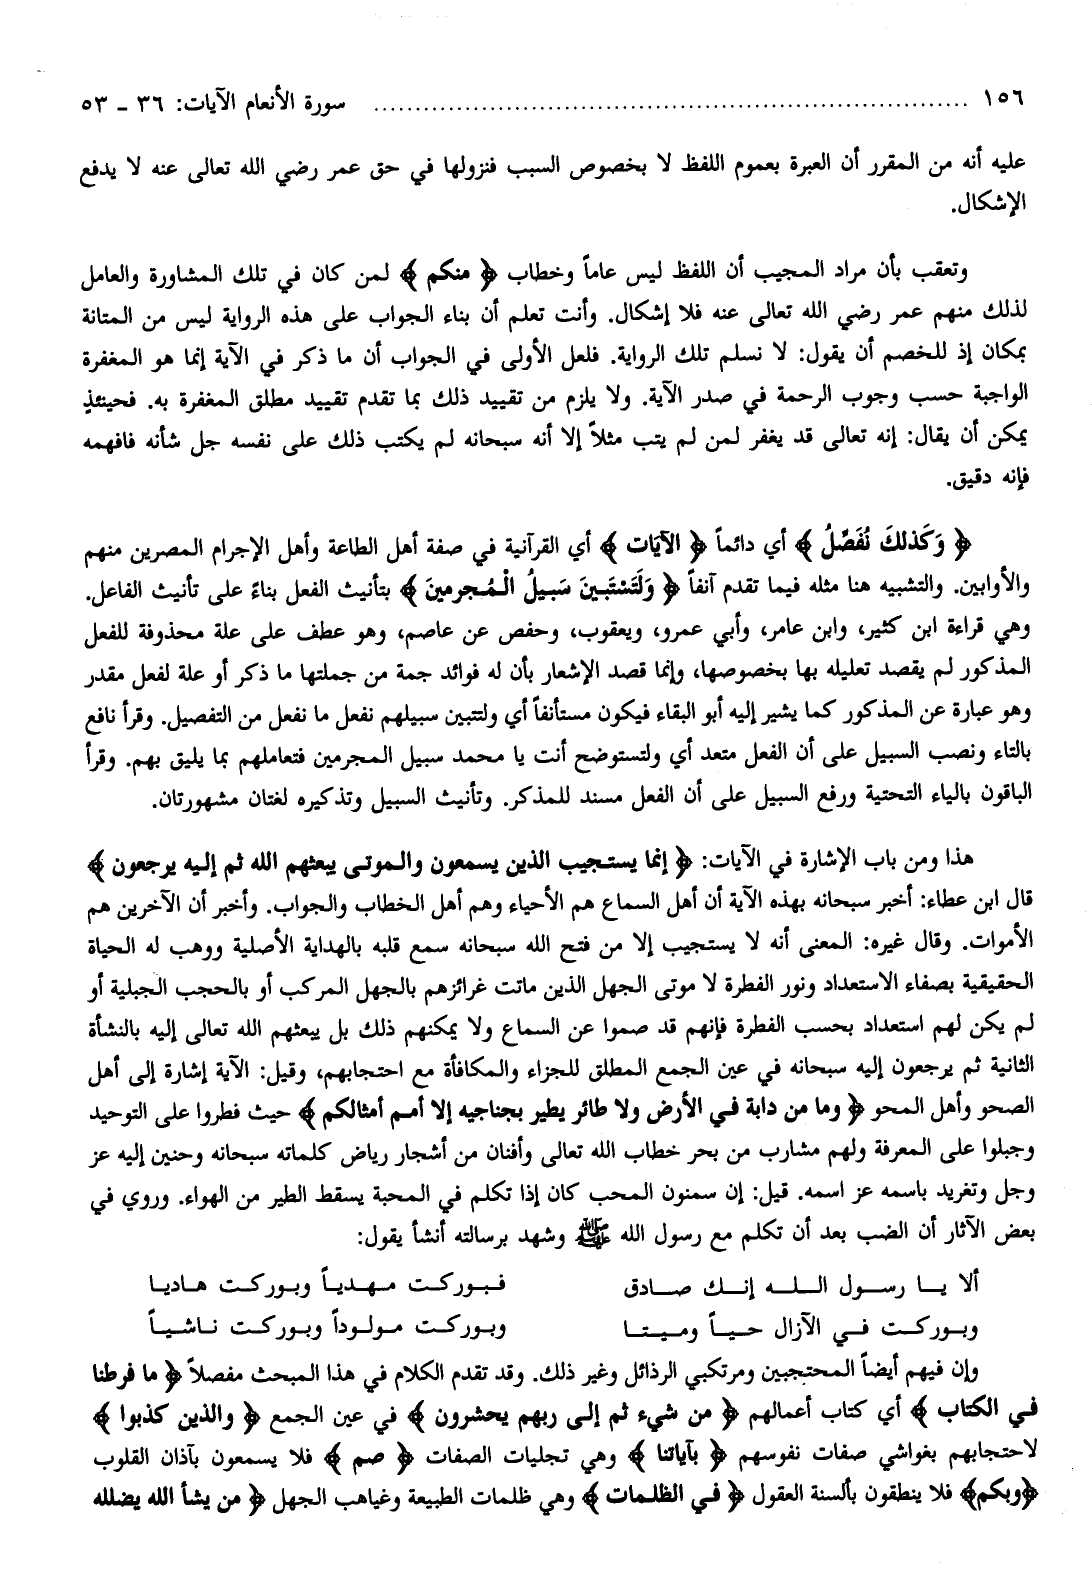 ١٥٦ ........................................................................ سورة الأنعام الآيات: ٣٦ ـ ٥٣
عليه أنه من المقرر أن العبرة بعموم اللفظ لا بخصوص السبب فنزولها في حق عمر رضي الله تعالى عنه لا يدفع
الإشكال.
وتعقب بأن مراد المجيب أن اللفظ ليس عاماً وخطاب ﴿ منكم ﴾ لمن كان في تلك المشاورة والعامل
لذلك منهم عمر رضي الله تعالى عنه فلا إشكال. وأنت تعلم أن بناء الجواب على هذه الرواية ليس من المتانة
بمكان إذ للخصم أن يقول: لا نسلم تلك الرواية. فلعل الأولى في الجواب أن ما ذكر في الآية إنما هو المغفرة
الواجبة حسب وجوب الرحمة في صدر الآية. ولا يلزم من تقييد ذلك بما تقدم تقييد مطلق المغفرة به. فحينئذٍ
يمكن أن يقال: إنه تعالى قد يغفر لمن لم يتب مثلاً إلا أنه سبحانه لم يكتب ذلك على نفسه جل شأنه فافهمه
فإنه دقيق.
﴿ وَكَذلكَ نُفَصِّلُ ﴾ أي دائماً ﴿ الآيَات ﴾ أي القرآنية في صفة أهل الطاعة وأهل الإجرام المصرين منهم
والأوابين. والتشبيه هنا مثله فيما تقدم آنفاً ﴿ وَلتَسْتَبينَ سَبيلُ الْمُجرمينَ ﴾ بتأنيث الفعل بناءً على تأنيث الفاعل.
وهي قراءة ابن كثير، وابن عامر، وأبي عمرو، ويعقوب، وحفص عن عاصم، وهو عطف على علة محذوفة للفعل
المذكور لم يقصد تعليله بها بخصوصها، وإنما قصد الإشعار بأن له فوائد جمة من جملتها ما ذكر أو علة لفعل مقدر
وهو عبارة عن المذكور كما يشير إليه أبو البقاء فيكون مستأنفاً أي ولتتبين سبيلهم نفعل ما نفعل من التفصيل. وقرأ نافع
بالتاء ونصب السبيل على أن الفعل متعد أي ولتستوضح أنت يا محمد سبيل المجرمين فتعاملهم بما يليق بهم. وقرأ
الباقون بالياء التحتية ورفع السبيل على أن الفعل مسند للمذكر. وتأنيث السبيل وتذكيره لغتان مشهورتان.
هذا ومن باب الإشارة في الآيات: ﴿ إنما يستجيب الذين يسمعون والموتى يبعثهم الله ثم إليه يرجعون ﴾
قال ابن عطاء: أخبر سبحانه بهذه الآية أن أهل السماع هم الأحياء وهم أهل الخطاب والجواب. وأخبر أن الآخرين هم
الأموات. وقال غيره: المعنى أنه لا يستجيب إلا من فتح الله سبحانه سمع قلبه بالهداية الأصلية ووهب له الحياة
الحقيقية بصفاء الاستعداد ونور الفطرة لا موتى الجهل الذين ماتت غرائزهم بالجهل المركب أو بالحجب الجبلية أو
لم يكن لهم استعداد بحسب الفطرة فإنهم قد صموا عن السماع ولا يمكنهم ذلك بل يبعثهم الله تعالى إليه بالنشأة
الثانية ثم يرجعون إليه سبحانه في عين الجمع المطلق للجزاء والمكافأة مع احتجابهم، وقيل: الآية إشارة إلى أهل
الصحو وأهل المحو ﴿ وما من دابة في الأرض ولا طائر يطير بجناحيه إلا أمم أمثالكم ﴾ حيث فطروا على التوحيد
وجبلوا على المعرفة ولهم مشارب من بحر خطاب الله تعالى وأفنان من أشجار رياض كلماته سبحانه وحنين إليه عز
وجل وتغريد باسمه عز اسمه. قيل: إن سمنون المحب كان إذا تكلم في المحبة يسقط الطير من الهواء. وروي في
بعض الآثار أن الضب بعد أن تكلم مع رسول الله ﷺ وشهد برسالته أنشأ يقول:
ألا يا رسول الله إنك صادق فبوركت مهدياً وبوركت هاديا
وبوركت في الآزال حياً وميتا وبوركت مولوداً وبوركت ناشياً
وإن فيهم أيضاً المحتجبين ومرتكبي الرذائل وغير ذلك. وقد تقدم الكلام في هذا المبحث مفصلاً ﴿ ما فرطنا
في الكتاب ﴾ أي كتاب أعمالهم ﴿ من شيء ثم إلى ربهم يحشرون ﴾ في عين الجمع ﴿ والذين كذبوا ﴾
لاحتجابهم بغواشي صفات نفوسهم ﴿ بآياتنا ﴾ وهي تجليات الصفات ﴿ صم ﴾ فلا يسمعون بآذان القلوب
﴿وبكم﴾ فلا ينطقون بألسنة العقول ﴿ في الظلمات ﴾ وهي ظلمات الطبيعة وغياهب الجهل ﴿ من يشأ الله يضلله